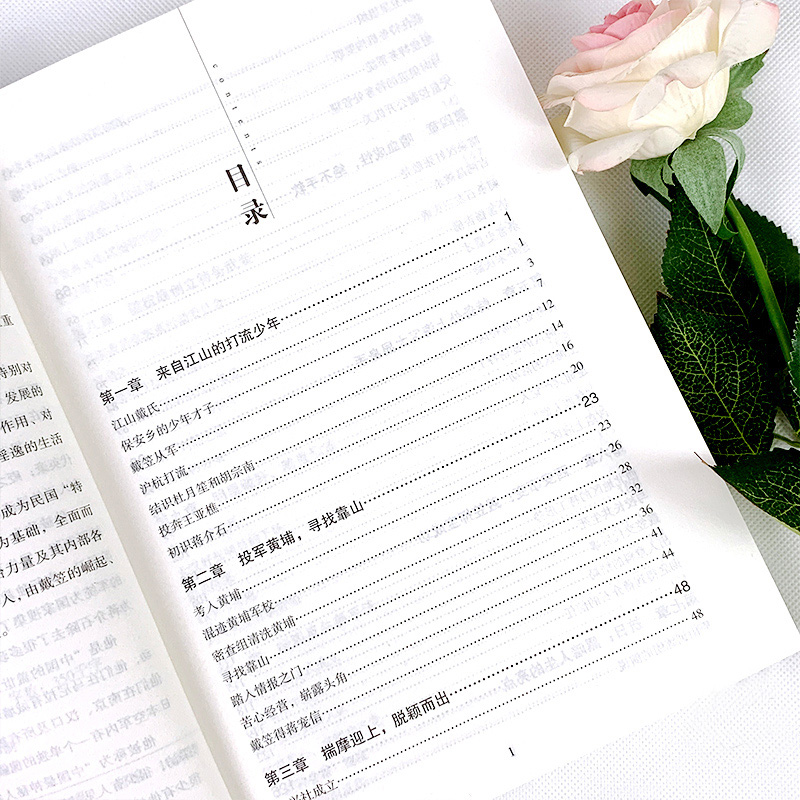 重
特别对
发展的
作用、对
淫逸的生活
成为民国“特
为基础，全面而
力量及其内部各
人，由戴笠的崛起、
contents
目录
第一章 来自江山的打流少年……1
江山戴氏……1
保安乡的少年才子……3
戴笠从军……7
沪杭打流……12
结识杜月笙和胡宗南……14
投奔王亚樵……16
初识蒋介石……20
第二章 投军黄埔，寻找靠山……23
考入黄埔……23
混迹黄埔军校……26
密查组清洗黄埔……28
寻找靠山……32
踏入情报之门……36
苦心经营，崭露头角……41
戴笠得蒋宠信……44
第三章 揣摩迎上，脱颖而出……48
兴社成立……48
1